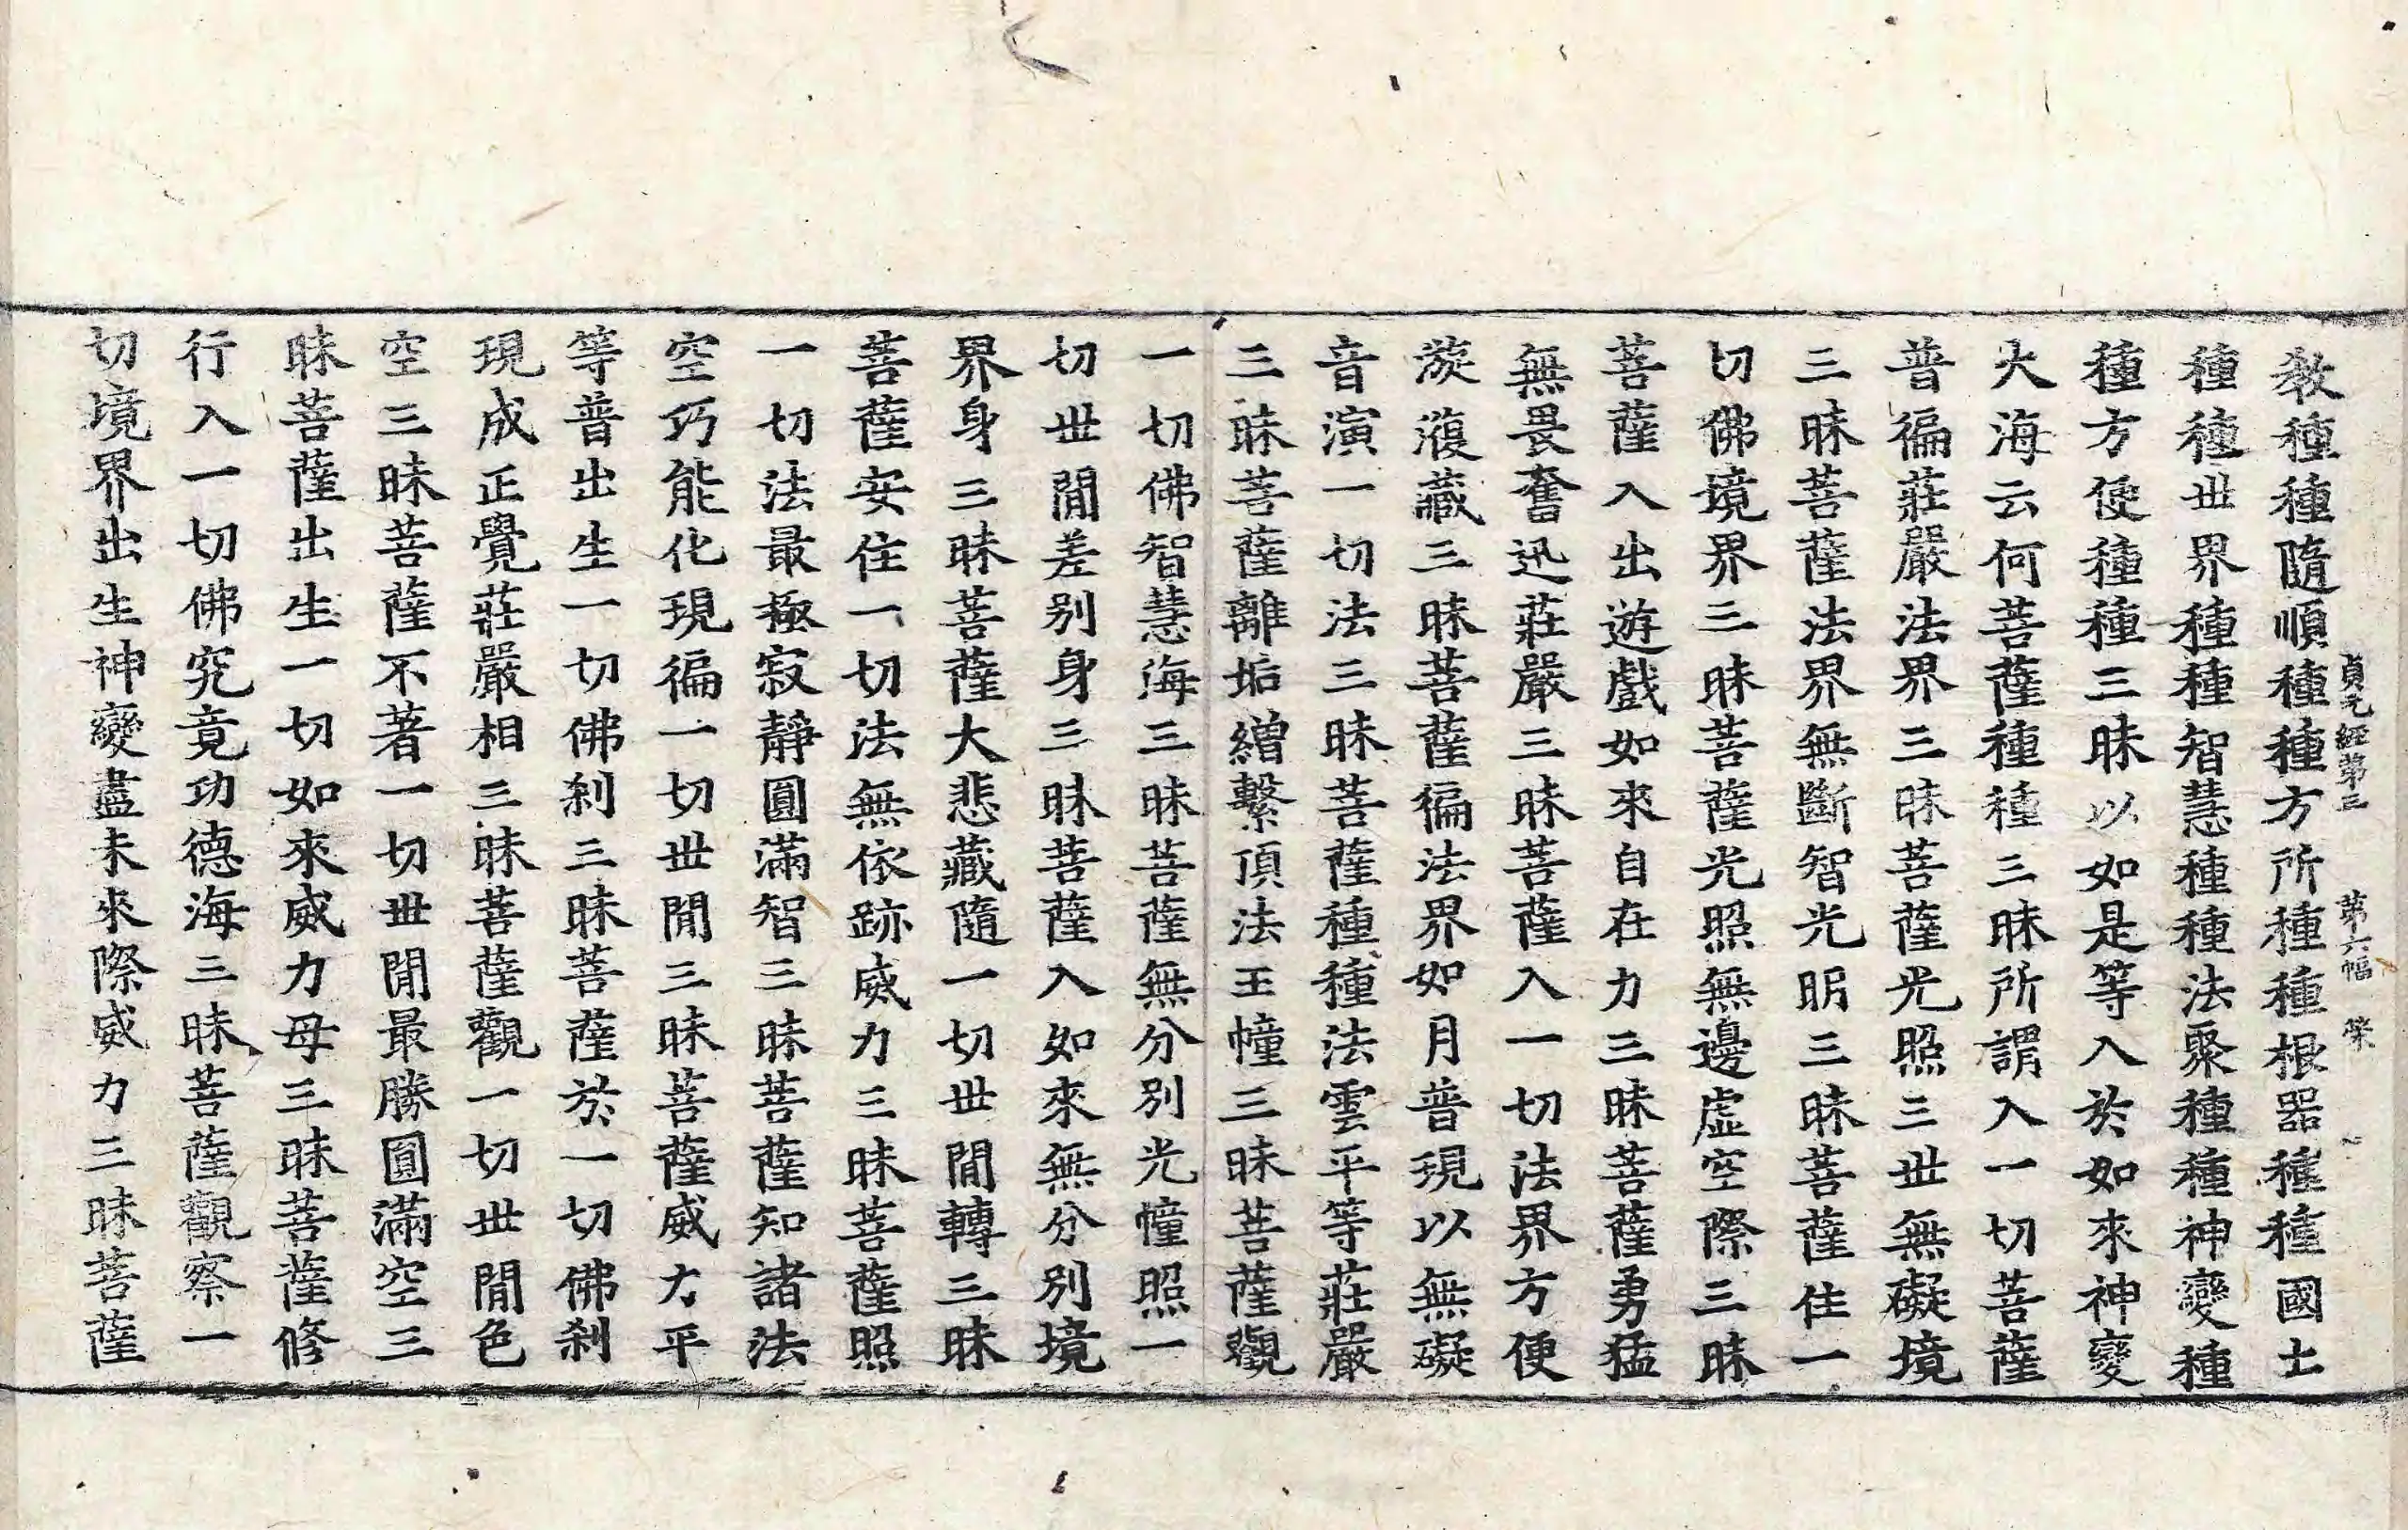 教種種隨順種種方所種種根器種種國土
貞元經第三 第六幅
種種世界種種智慧種種法聚種種神變種
種方便種種三昧以如是等入於如來神變
大海云何菩薩種種三昧所謂入一切菩薩
普徧莊嚴法界三昧菩薩光照三世無礙境
三昧菩薩法界無斷智光明三昧菩薩住一
切佛境界三昧菩薩光照無邊虛空際三昧
菩薩入出遊戲如來自在力三昧菩薩勇猛
無畏奮迅莊嚴三昧菩薩入一切法界方便
漩澓藏三昧菩薩徧法界如月普現以無礙
音演一切法三昧菩薩種種法雲平等莊嚴
三昧菩薩離垢繒繫頂法王幢三昧菩薩觀
一切佛智慧海三昧菩薩無分別光幢照一
切世閒差別身三昧菩薩入如來無分別境
界身三昧菩薩大悲藏隨一切世閒轉三昧
菩薩安住一切法無依跡威力三昧菩薩照
一切法最極寂靜圓滿智三昧菩薩知諸法
空巧能化現徧一切世閒三昧菩薩威力平
等普出生一切佛刹三昧菩薩於一切佛刹
現成正覺莊嚴相三昧菩薩觀一切世閒色
空三昧菩薩不著一切世閒最勝圓滿空三
昧菩薩出生一切如來威力母三昧菩薩修
行入一切佛究竟功德海三昧菩薩觀察一
切境界出生神變盡未來際威力三昧菩薩